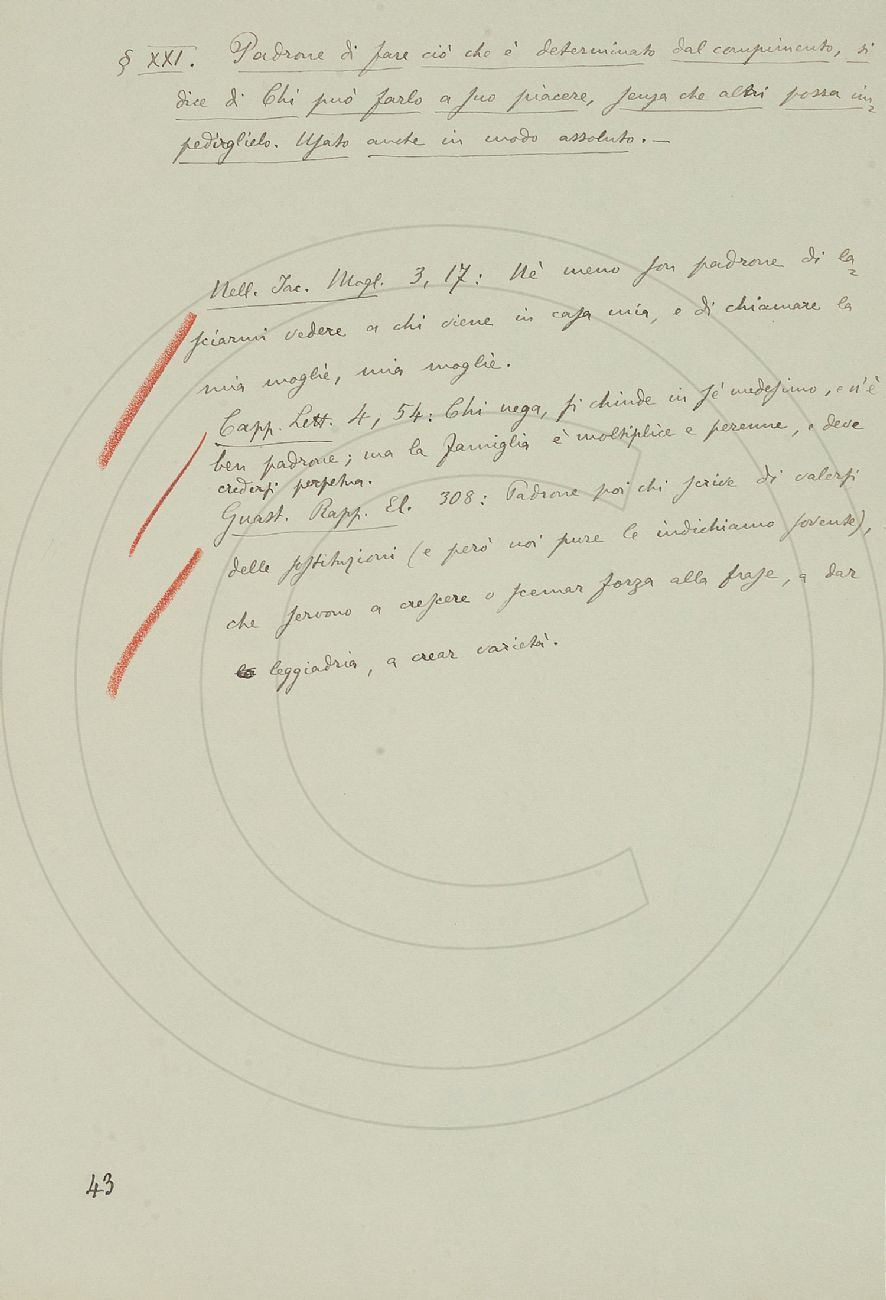 § XXI. Padrone di fare ciò che è determinato dal compimento, si
dice di Chi può farlo a suo piacere, senza che altri possa im=
pedirglielo. Usato anche in modo assoluto. —
Nell. Iac. Mogl. 3, 17: Nè meno son padrone di la=
sciarmi vedere a chi viene in casa mia, e di chiamare la
mia moglie, mia moglie.
Capp. Lett. 4, 54: Chi nega, si chiude in sé medesimo, e n'è
ben padrone; ma la famiglia è moltiplice e perenne, e deve
credersi perpetua.
Guast. Rapp. El. 308: Padrone poi chi scrive di valersi
delle sostituzioni (e però noi pure le indichiamo sovente),
che servono a crescere o scemar forza alla frase, a dar
leggiadria, a crear varietà.
43